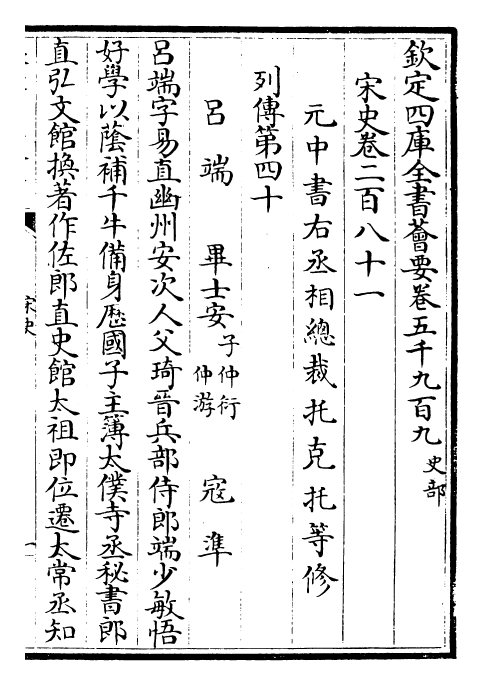 欽定四庫全書薈要卷五千九百九 史部
宋史卷二百八十一
元中書右丞相總裁托克托等修
列傳第四十
呂端 畢士安 子仲衍 仲游 寇準
呂端字易直幽州安次人父琦晉兵部侍郎端少敏悟
好學以蔭補千牛備身歴國子主簿太僕寺丞秘書郎
直弘文館換著作佐郎直史館太祖即位遷太常丞知
宋史